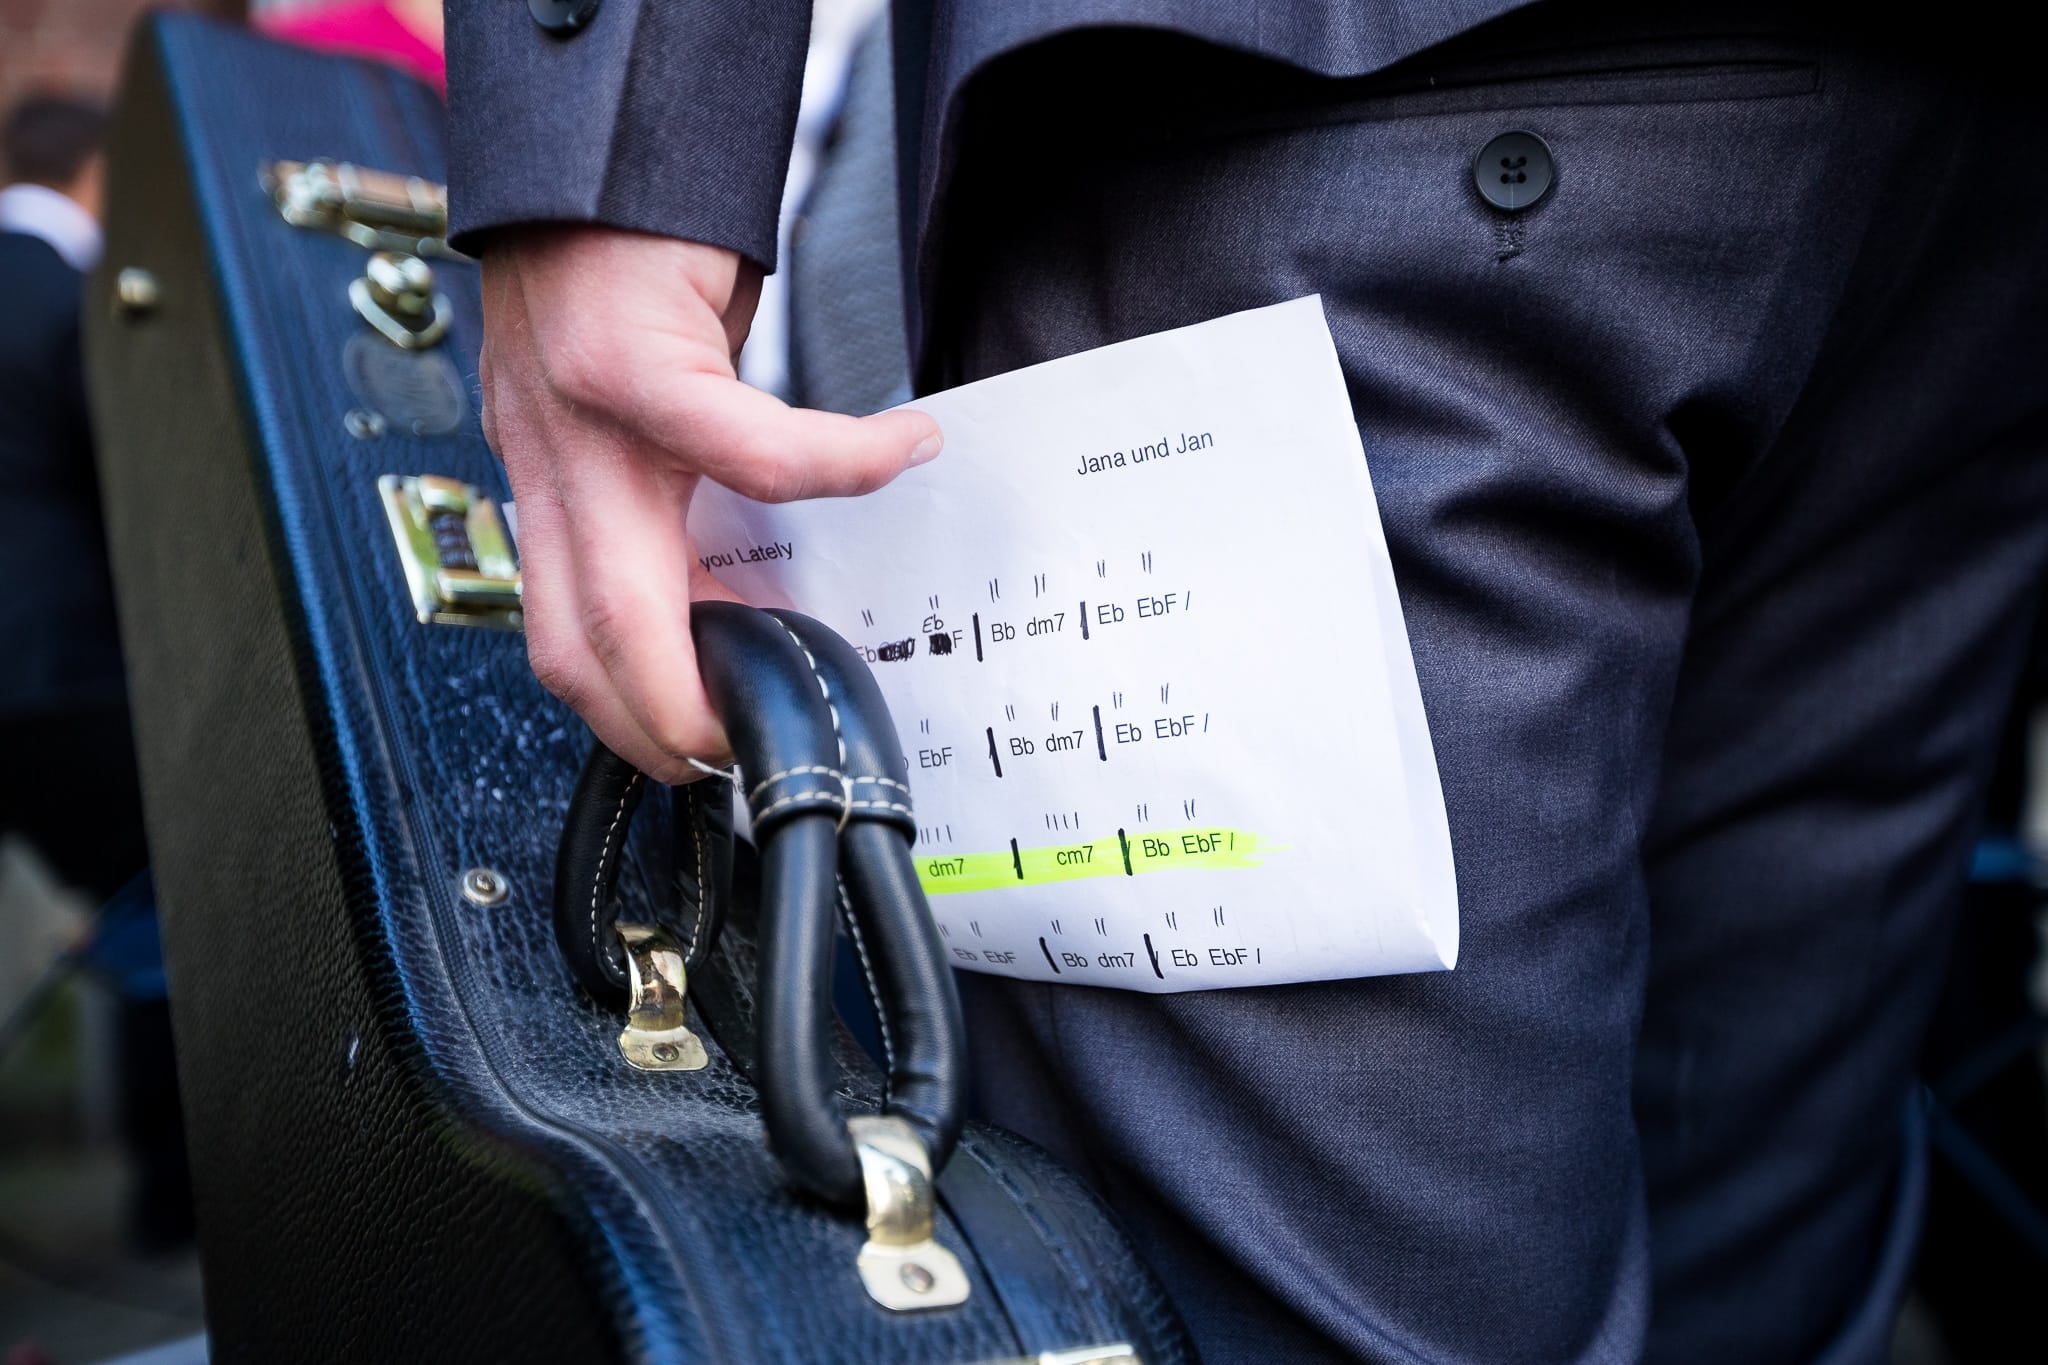 Jana und Jan
you Lately
Eb
Eb F | Bb dm7 | Eb EbF /
EbF | Bb dm7 | Eb EbF /
dm7 | cm7 | Bb EbF /
Eb EbF | Bb dm7 | Eb EbF /